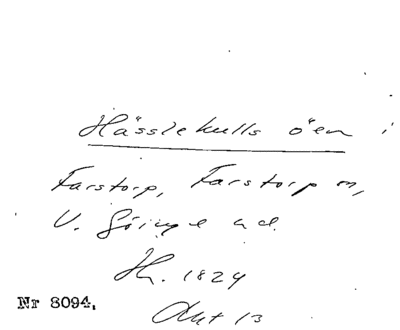 Hässlekulls ö'en i
Farstorp, Farstorp sn,
V. Göinge hd.
Hr. 1824
Nr 8094.
Akt 13